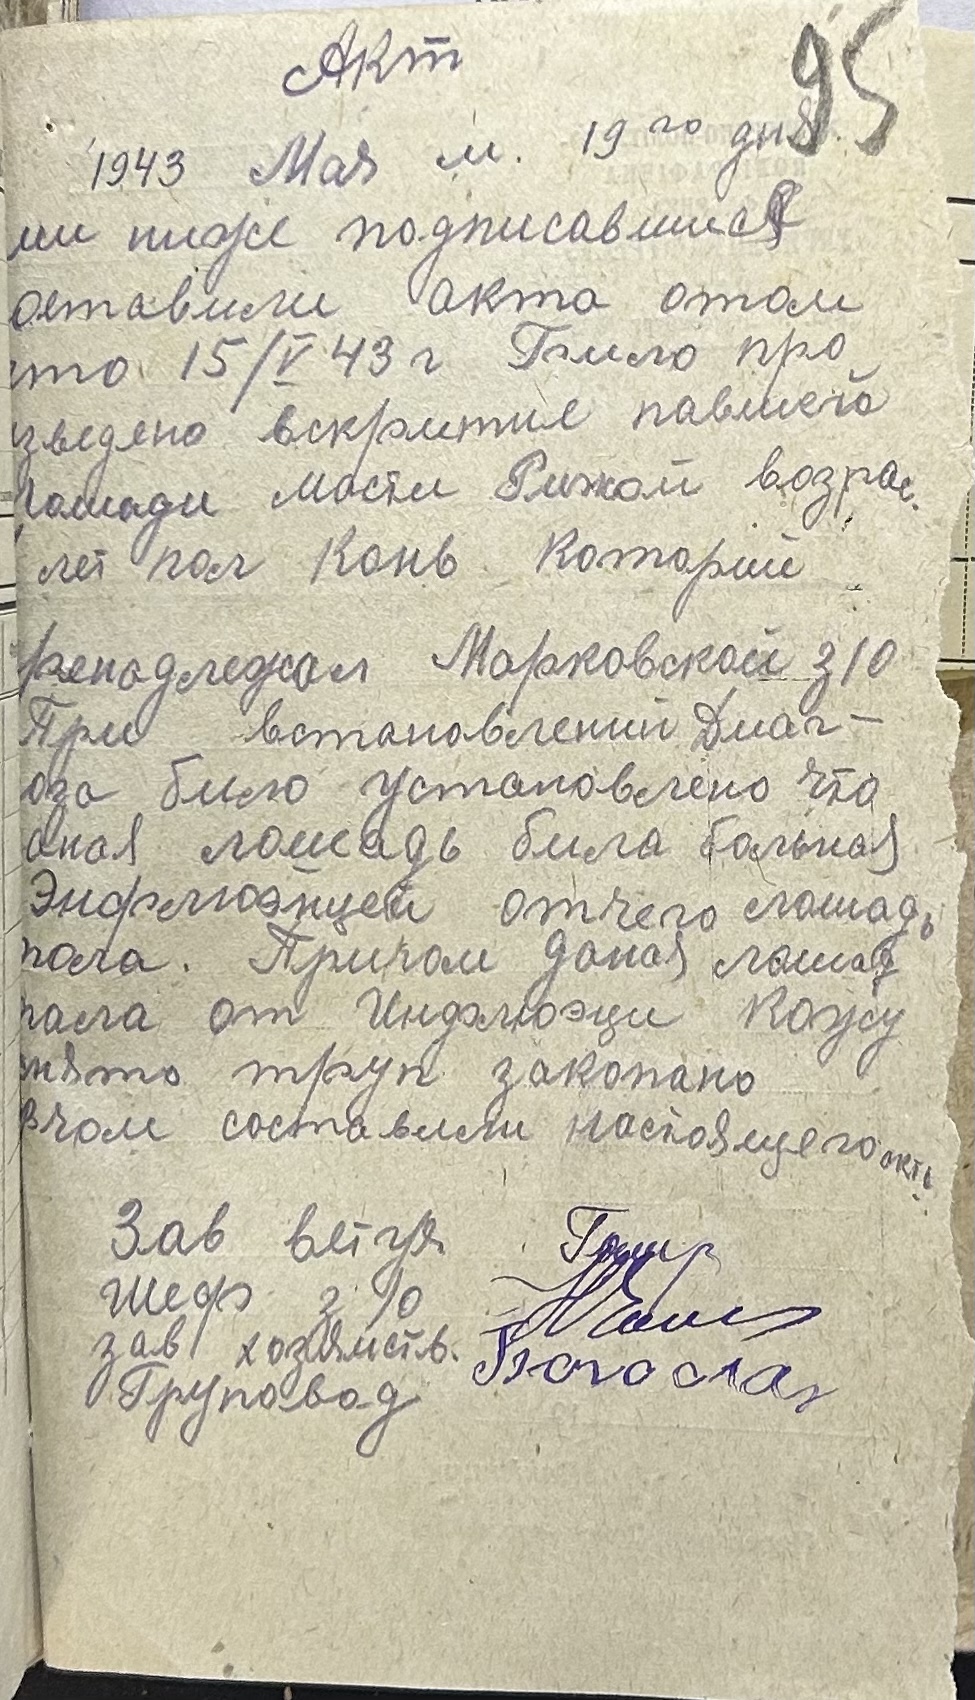 95
Акт
1943 Мая м. 19го дня
ми ниже подписавшися
оставили акта отом
что 15/V 43 г Било про
изведено вскритие павшего
лошади масти Рижой возрас.
лет пол Конь Которий
ренадлежал Марковской з/о
При встановлений Диаг-
оза било установлено что
аная лошадь била больная
Энфлюэнцей отчего лошадь
пала. Причом даная лошад
пала от Инфлюэци Кожу
нято труп закопано
вчом составили настоящего акт
Зав вет уч.
Шеф з/о
зав хозяиств.
Груповод
Богослав